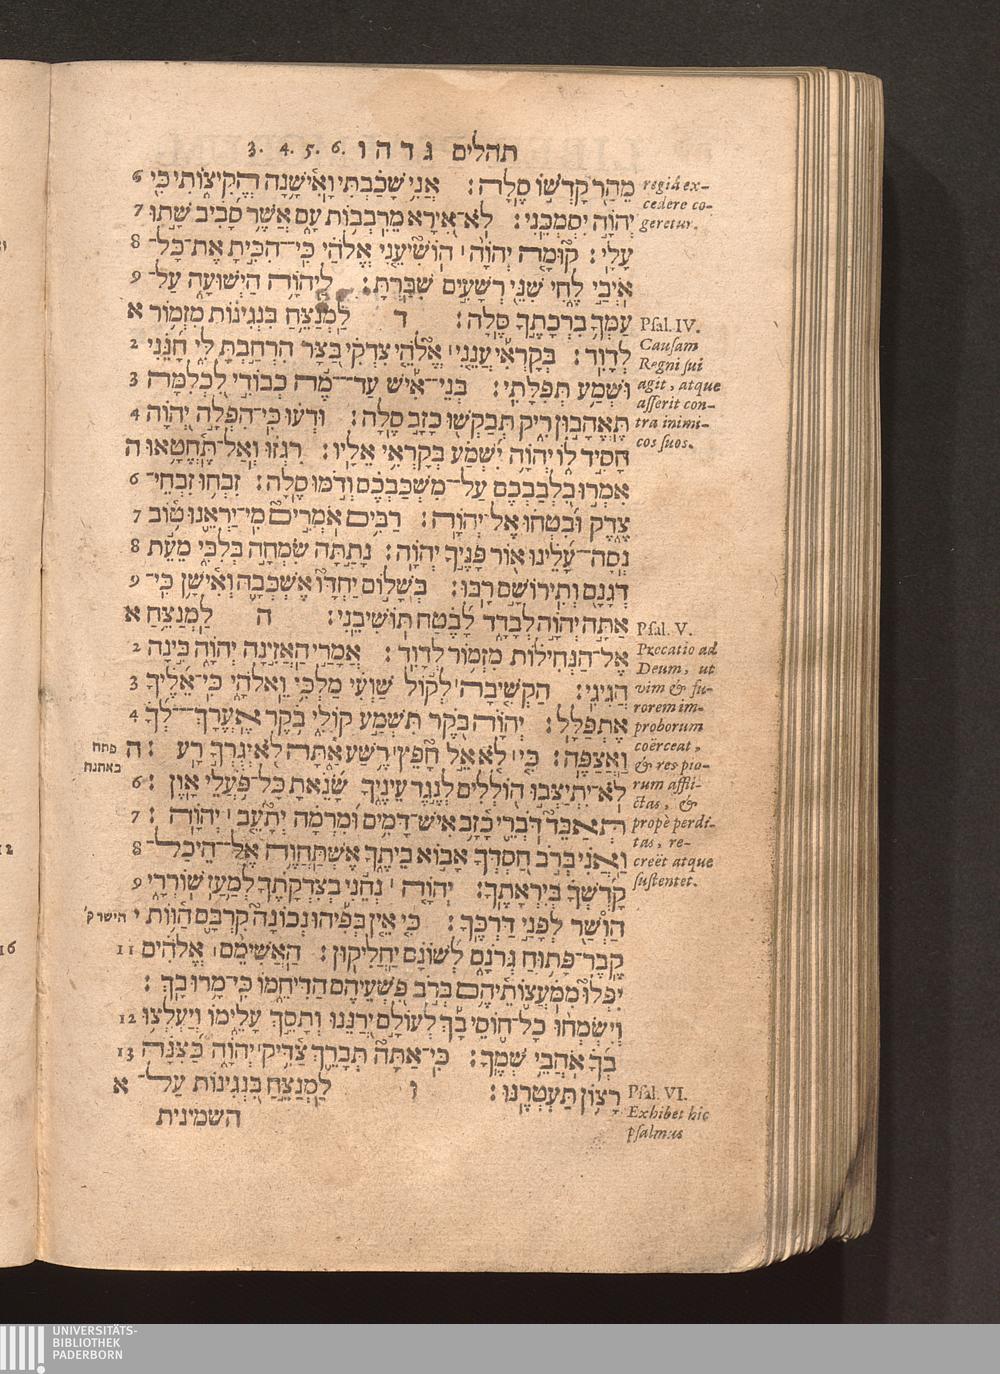 תהלים ג ד ה ו 3. 4. 5. 6.
מֵהַר קָדְשׁוֹ סֶלָה: אֲנִי שָׁכַבְתִּי וָאִישָׁנָה הֱקִיצוֹתִי כִּי 6
יְהוָה יִסְמְכֵנִי: לֹא־אִירָא מֵרִבְבוֹת עָם אֲשֶׁר סָבִיב שָׁתוּ 7
עָלָי: קוּמָה יְהוָה׀ הוֹשִׁיעֵנִי אֱלֹהַי כִּי־הִכִּיתָ אֶת־כָּל־ 8
אֹיְבַי לֶחִי שִׁנֵּי רְשָׁעִים שִׁבַּרְתָּ: לַיהוָה הַיְשׁוּעָה עַל־ 9
עַמְּךָ בִרְכָתֶךָ סֶּלָה: ד לַמְנַצֵּחַ בִּנְגִינוֹת מִזְמוֹר א
לְדָוִד: בְּקָרְאִי עֲנֵנִי׀ אֱלֹהֵי צִדְקִי בַּצָּר הִרְחַבְתָּ לִּי חָנֵּנִי 2
וּשְׁמַע תְּפִלָּתִי: בְּנֵי־אִישׁ עַד־מֶה כְבוֹדִי לִכְלִמָּה 3
תֶּאֱהָבוּן רִיק תְּבַקְשׁוּ כָזָב סֶלָה: וּדְעוּ כִּי־הִפְלָה יְהוָה 4
חָסִיד לוֹ יְהוָה יִשְׁמַע בְּקָרְאִי אֵלָיו: רִגְזוּ וְאַל־תֶּחֱטָאוּ ה
אִמְרוּ בִלְבַבְכֶם עַל־מִשְׁכַּבְכֶם וְדֹמּוּ סֶלָה: זִבְחוּ זִבְחֵי־ 6
צֶדֶק וּבִטְחוּ אֶל־יְהוָה: רַבִּים אֹמְרִים מִי־יַרְאֵנוּ טוֹב 7
נְסָה־עָלֵינוּ אוֹר פָּנֶיךָ יְהוָה: נָתַתָּה שִׂמְחָה בְלִבִּי מֵעֵת 8
דְּגָנָם וְתִירוֹשָׁם רָבּוּ: בְּשָׁלוֹם יַחְדָּו אֶשְׁכְּבָה וְאִישָׁן כִּי־ 9
אַתָּה יְהוָה לְבָדָד לָבֶטַח תּוֹשִׁיבֵנִי: ה לַמְנַצֵּחַ א
אֶל־הַנְּחִילוֹת מִזְמוֹר לְדָוִד: אֲמָרַי הַאֲזִינָה יְהוָה בִּינָה 2
הֲגִיגִי: הַקְשִׁיבָה׀ לְקוֹל שַׁוְעִי מַלְכִּי וֵאלֹהָי כִּי־אֵלֶיךָ 3
אֶתְפַּלָּל: יְהוָה בֹּקֶר תִּשְׁמַע קוֹלִי בֹּקֶר אֶעֱרָךְ־לְךָ 4
וַאֲצַפֶּה: כִּי׀ לֹא אֵל חָפֵץ רֶשַׁע אָתָּה לֹא יְגֻרְךָ רָע: ה
לֹא־יִתְיַצְּבוּ הוֹלְלִים לְנֶגֶד עֵינֶיךָ שָׂנֵאתָ כָּל־פֹּעֲלֵי אָוֶן: 6
תְּאַבֵּד דֹּבְרֵי כָזָב אִישׁ־דָּמִים וּמִרְמָה יְתָעֵב׀ יְהוָה: 7
וַאֲנִי בְּרֹב חַסְדְּךָ אָבוֹא בֵיתֶךָ אֶשְׁתַּחֲוֶה אֶל־הֵיכַל־ 8
קָדְשְׁךָ בְּיִרְאָתֶךָ: יְהוָה׀ נְחֵנִי בְצִדְקָתֶךָ לְמַעַן שׁוֹרְרָי 9
הַוְשַׁר לְפָנַי דַּרְכֶּךָ: כִּי אֵין בְּפִיהוּ נְכוֹנָה קִרְבָּם הַוּוֹת י
קֶבֶר־פָּתוּחַ גְּרֹנָם לְשׁוֹנָם יַחֲלִיקוּן: הַאֲשִׁימֵם׀ אֱלֹהִים 11
יִפְּלוּ מִמֹּעֲצוֹתֵיהֶם בְּרֹב פִּשְׁעֵיהֶם הַדִּיחֵמוֹ כִּי־מָרוּ בָךְ:
וְיִשְׂמְחוּ כָל־חוֹסֵי בָךְ לְעוֹלָם יְרַנֵּנוּ וְתָסֵךְ עָלֵימוֹ וְיַעְלְצוּ 12
בְךָ אֹהֲבֵי שְׁמֶךָ: כִּי־אַתָּה תְּבָרֵךְ צַדִּיק יְהוָה כַּצִּנָּה 13
רָצוֹן תַּעְטְרֶנּוּ: ו לַמְנַצֵּחַ בִּנְגִינוֹת עַל־ א
השמינית
regiâ ex-
cedere co-
geretur.
Psal. IV.
Causam
Regni sui
agit, atque
asserit con-
tra inimi-
cos suos.
Psal. V.
Precatio ad
Deum, ut
vim & fu-
rorem im-
proborum
coërceat,
& res pio-
rum affli-
ctas, &
propè perdi-
tas, re-
creët atque
sustentet.
Psal. VI.
Exhibet hic
psalmus
פתח
באתנח
הישר ק'
12
16
UNIVERSITÄTS-
BIBLIOTHEK
PADERBORN